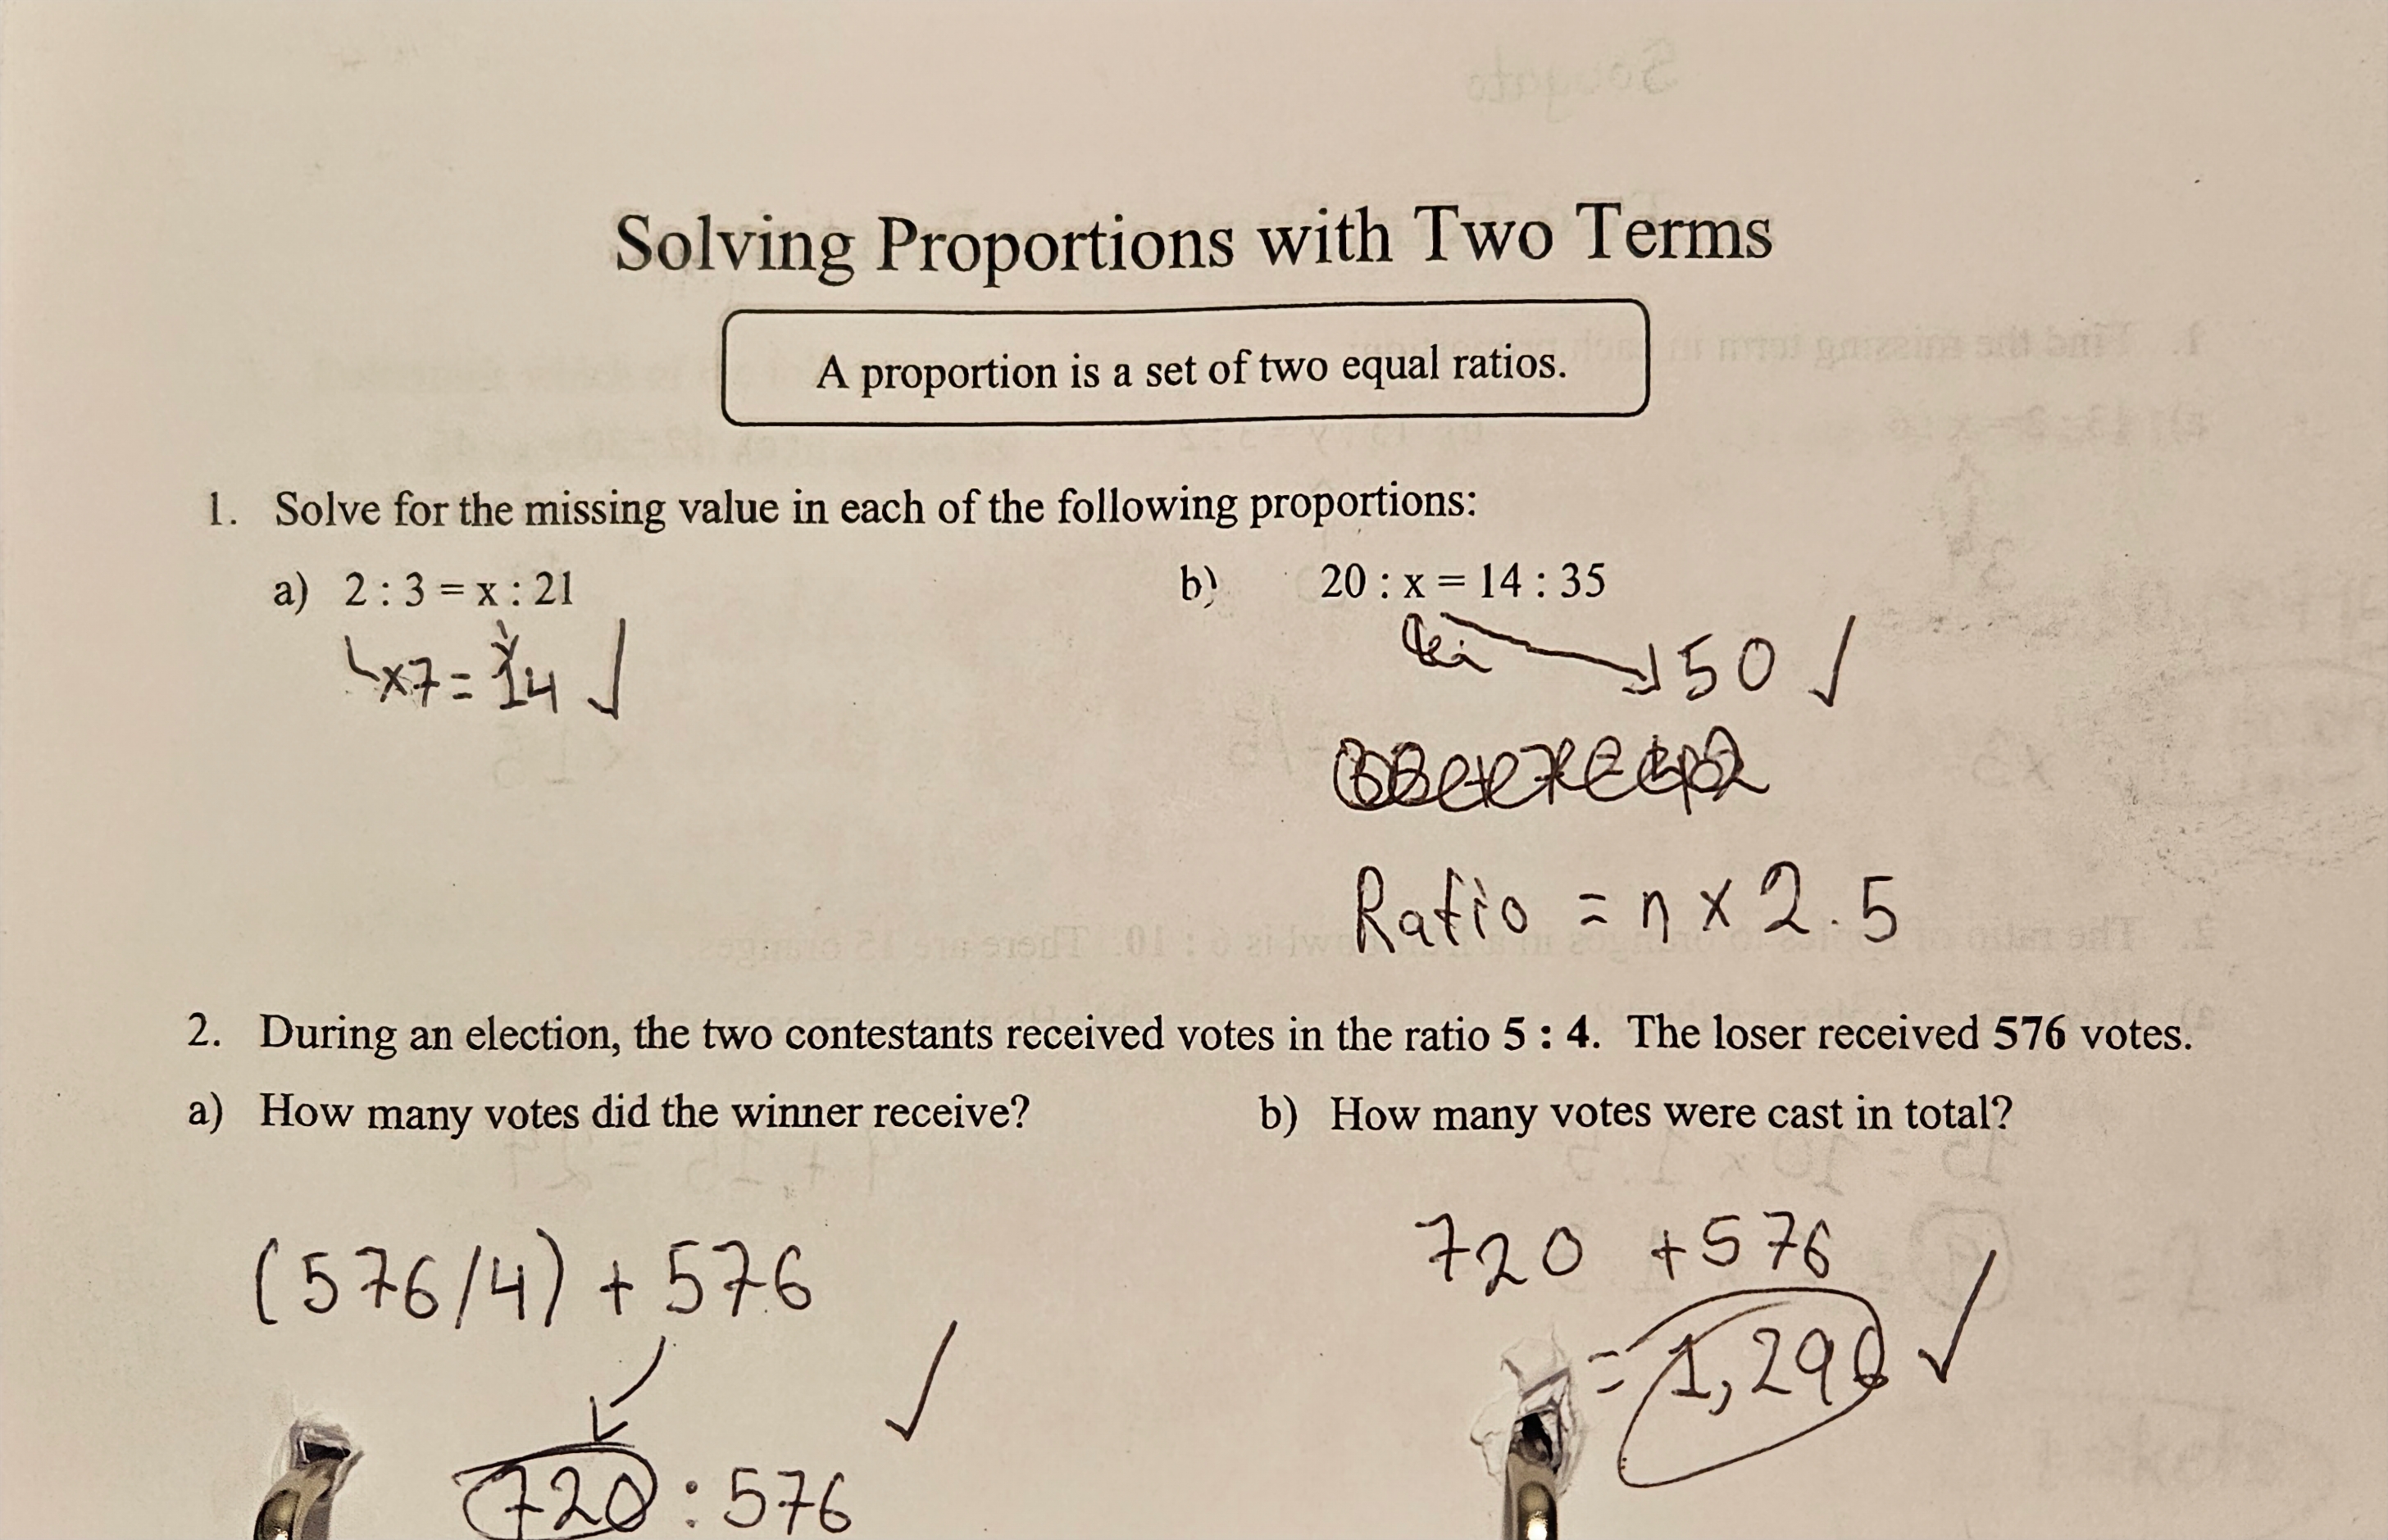 Solving Proportions with Two Terms
A proportion is a set of two equal ratios.
1. Solve for the missing value in each of the following proportions:
a) 2 : 3 = x : 21
b) 20 : x = 14 : 35
x7 = 14 ✓
50 ✓
Ratio = n x 2.5
2. During an election, the two contestants received votes in the ratio 5 : 4. The loser received 576 votes.
a) How many votes did the winner receive?
b) How many votes were cast in total?
(576/4) + 576
720 + 576
= 1,296 ✓
✓
720 : 576